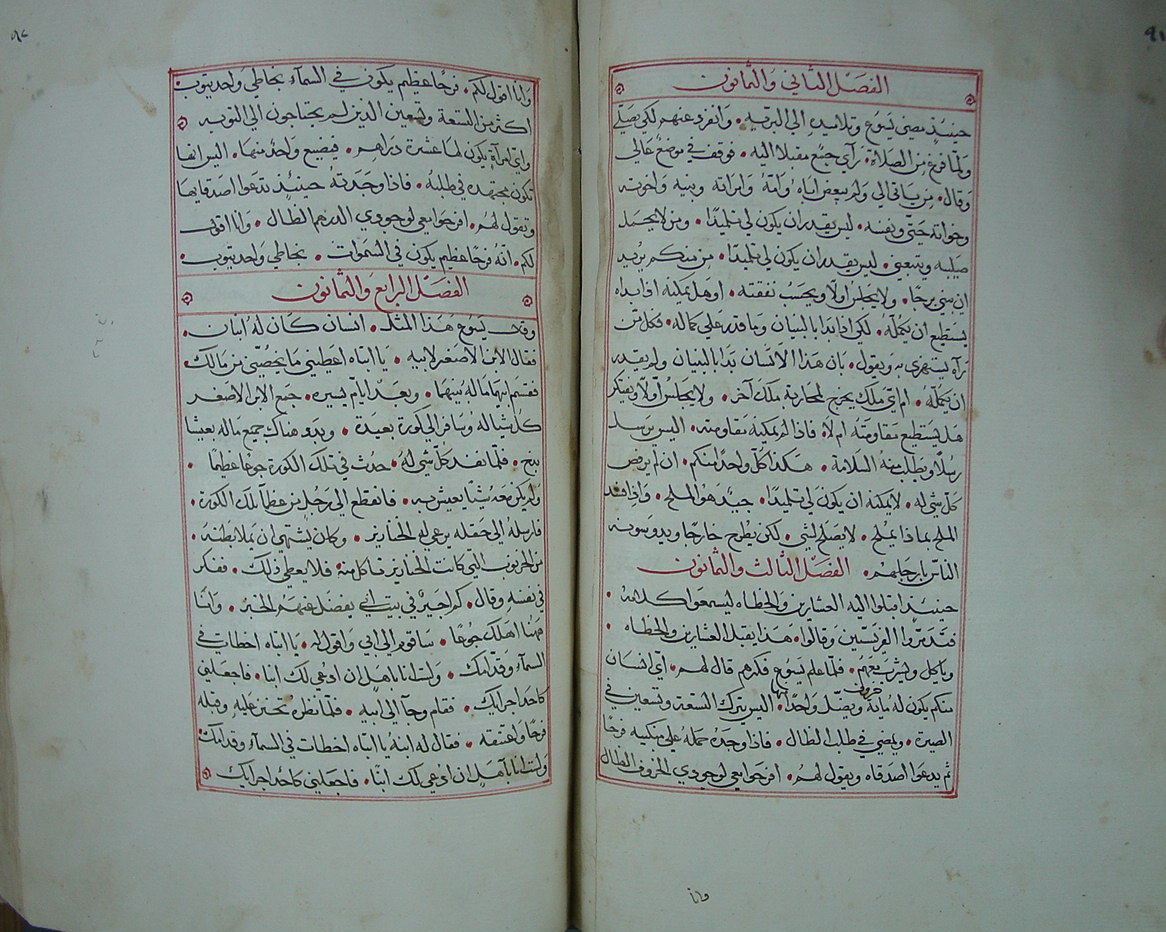 ٩١
الفصل الثاني والثمانون
حينيذٍ مضى يسوع وتلاميده الي البريه • وانفرد عنهم لكي يصلي
ولما فرغ من الصلاة • رآي جمع مقبلا اليه • فوقف في موضع عالي
وقال • من ياتي الي ولم يبغض اباه وامه وامراته وبنيه واخوته
وخواته حتى ونفسه • ليس يقدر ان يكون لي تلميدًا • ومن لا يحمل
صليبه ويتبعني • ليس يقدر ان يكون لي تلميدًا • من منكم يريد
ان يبني برجًا • ولا يجلس اولًا ويحسب نفقته • او هل يمكنه اذا بداه
يستطيع ان يكمله • لكي اذا بدا بالبنيان وما قدر على كماله • فكل من
رآه يستهزي به ويقول • بان هذا الانسان بدا بالبنيان ولم يقدر
ان يكمله • ام اي ملك يخرج لمحاربة ملك آخر • ولا يجلس اولًا ويفتكر
هل يستطيع مقاومته ام لا • فاذا لم يمكنه مقاومته • اليس يرسل
رسلًا ويطلب منه السلامة • هكذا كل واحد منكم • ان لم يرفض
كل شي له • لا يمكنه ان يكون لي تلميدًا • جيد هو الملح • واذا فسد
الملح بماذا يملح • لا يصلح لشي • لكن يطرح خارجًا ويدوسونه
الناس بارجلهم • الفصل الثالث والثمانون
حينيذٍ اقبلوا اليه العشارين والخطاه ليسمعوا كلامه •
فتذمروا الفريسيين وقالوا • هذا يقبل العشارين والخطاه •
وياكل ويشرب معهم • فلما علم يسوع فكرهم قال لهم • اي انسان
منكم يكون له ماية خروف ويضل واحدًا منها • اليس يترك التسعة وتسعين في
الصيرة • ويمضي في طلب الظال • فاذا وجده حمله على منكبيه فرحًا
ثم يدعوا اصدقاه ويقول لهم • افرحوا معي لوجودي الخروف الظال
وانا
وانا اقول لكم • فرحًا عظيم يكون في السمآء بخاطي واحد يتوب
اكثر من التسعة وتسعين الذين لم يحتاجون الي التوبه
واي امرآة يكون لها عشرة دراهم • فيضيع واحد منها • اليس انها
تكون مجتهده في طلبه • فاذا وجدته حينيذٍ تدعوا اصدقايها
وتقول لهم • افرحوا معي لوجودي الدرهم الظال • وانا اقول
لكم • انه فرحًا عظيم يكون في السموات • بخاطي واحد يتوب •
الفصل الرابع والثمانون
وقال يسوع هذا المثل • انسان كان له ابنان •
فقال الابن الاصغر لابيه • يا ابتاه اعطيني ما يخصني من مالك
فقسم لهما ماله سهما • وبعد ايام يسيره • جمع الابن الاصغر
كل شيًا له وسافر الي كورة بعيدة • وبدد هناك جميع ماله بعيشا
بدخ • فلما نفد كل شي له • حدث في تلك الكورة جوعًا عظيمًا •
ولم يكن معه شيًا يعيش به • فانقطع الى رجل من عظمآ تلك الكورة •
فارسله الي حقله يرعي له الخنازير • وكان يشتهي ان يملا بطنه •
من الخرنوب التي كانت الخنازير تاكل منه فلا يعطي ذلك • ففكر
في نفسه وقال • كم اجير في بيت ابي يفضل عنهم الخبز • وانا
ههنا اهلك جوعًا • ساقوم الي ابي واقول له • يا ابتاه اخطات في
السمآء وقدامك • ولست انا باهل ان ادعي لك ابنا • فاجعلني
كاحد اجرايك • فقام وجآ الي ابيه • فلما نظره تحنن عليه وقبله
فرحًا واعتنقه • فقال له ابنه يا ابتاه اخطات في السمآء وقدامك
ولست انا باهل ان ادعي لك ابنا • فاجعلني كاحد اجرايك